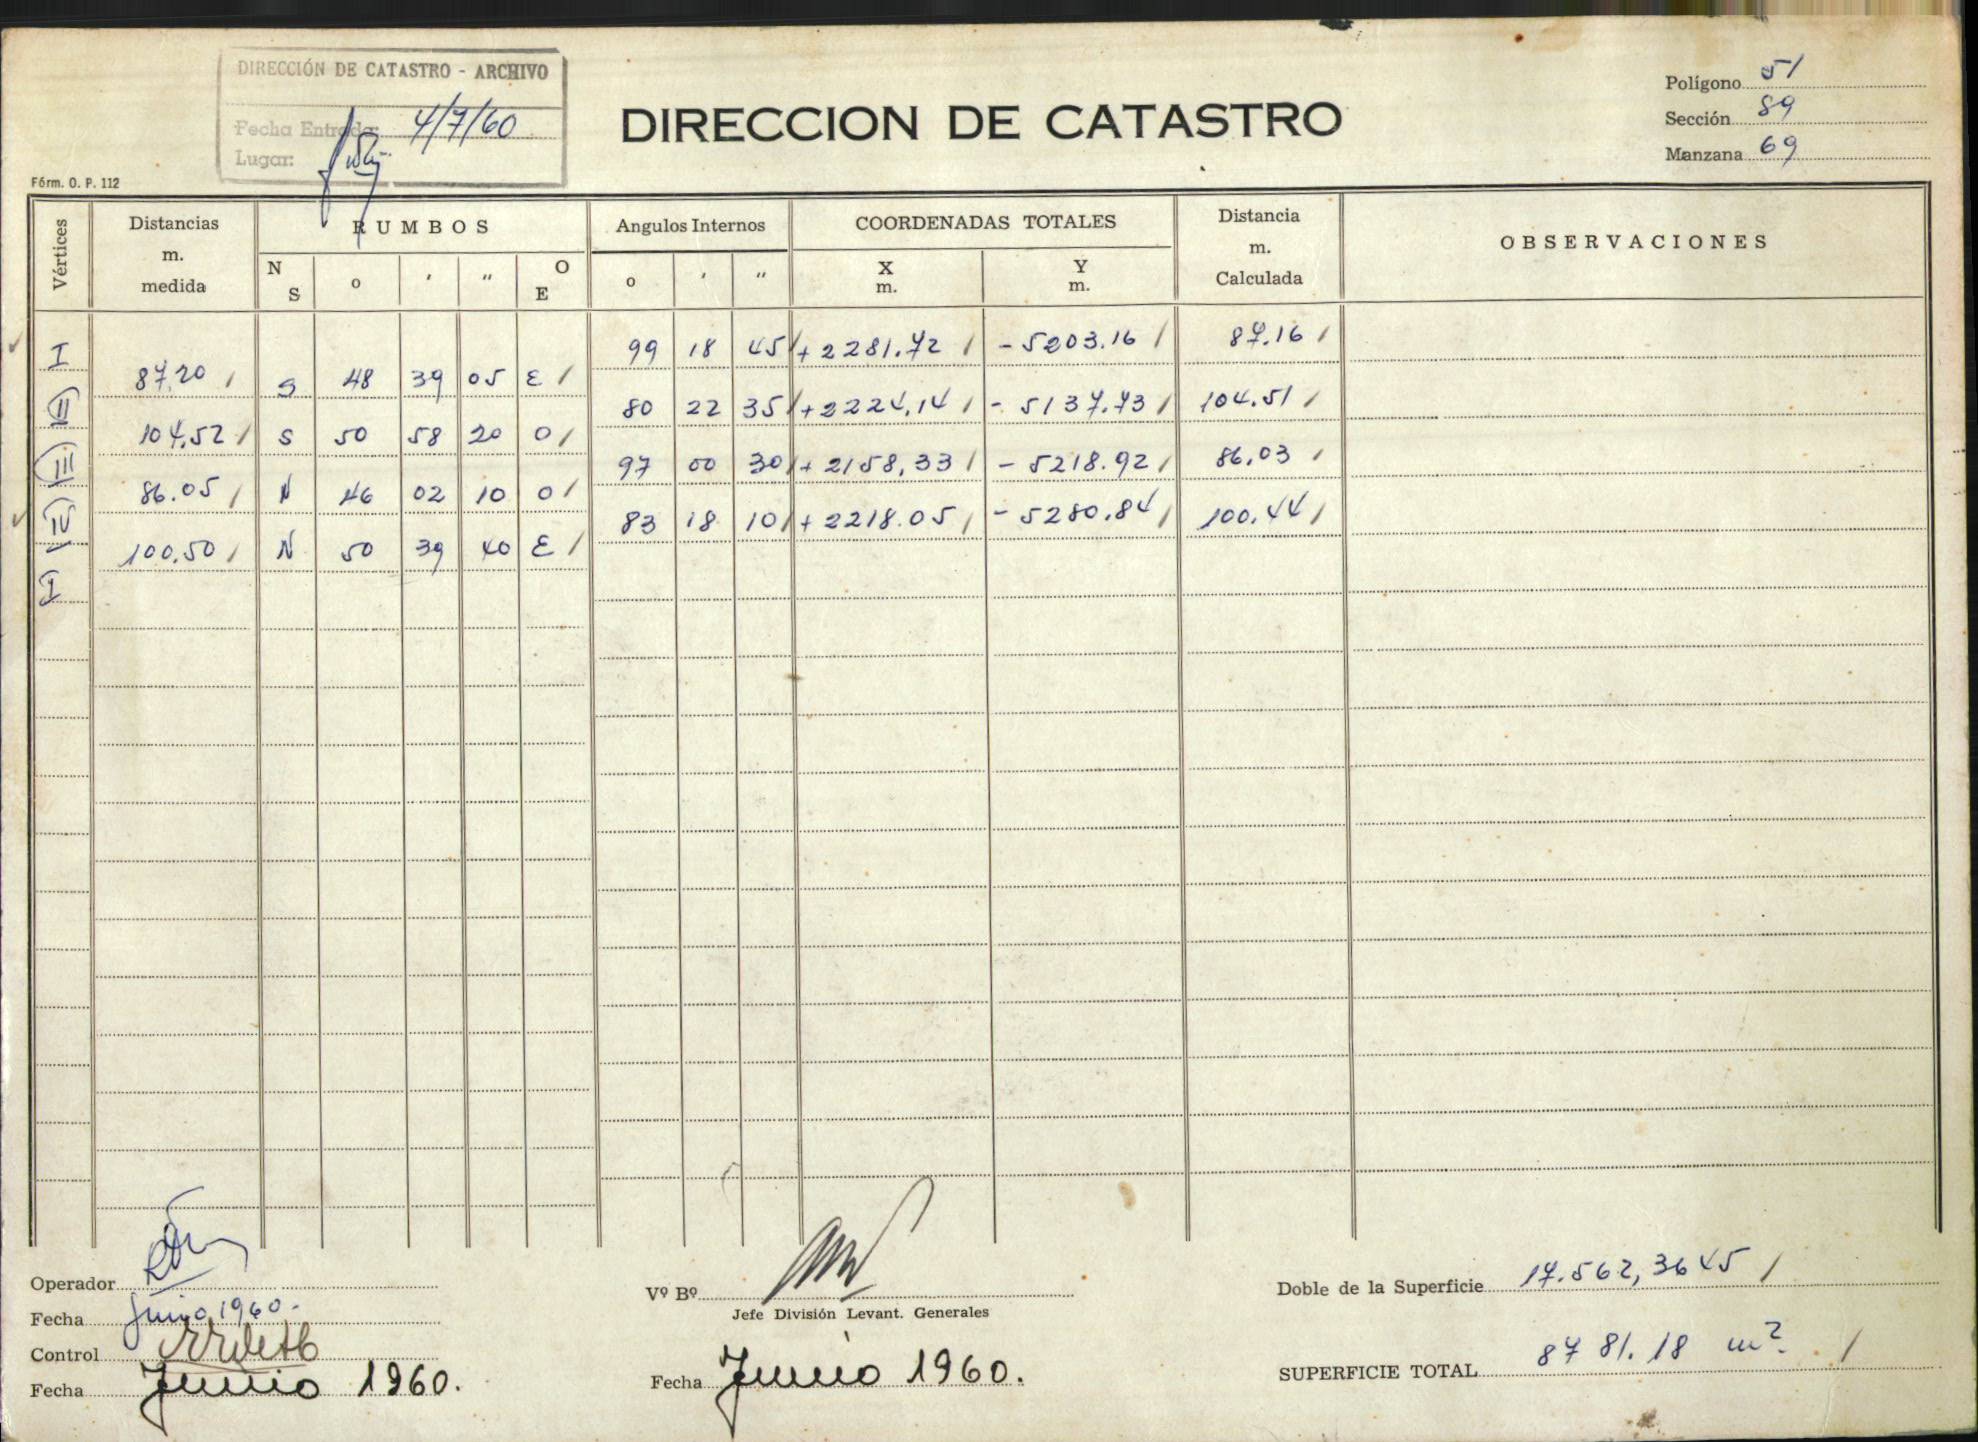 DIRECCIÓN DE CATASTRO - ARCHIVO
Fecha Entrada: 4/7/60
Lugar:
DIRECCION DE CATASTRO
Polígono 51
Sección 89
Manzana 69
Fórm. O. P. 112
Vértices
Distancias m. medida
RUMBOS
N S o ' " O E
Angulos Internos
o ' "
COORDENADAS TOTALES
X m. Y m.
Distancia m. Calculada
OBSERVACIONES
I 99 18 45 +2281.72 -5203.16 87.16
87,20 S 48 39 05 E
II 80 22 35 +2224,14 -5137.73 104.51
104,52 S 50 58 20 O
III 97 00 30 +2158,33 -5218.92 86,03
86.05 N 46 02 10 O
IV 83 18 10 +2218.05 -5280.84 100.44
100,50 N 50 39 40 E
I
Operador
Fecha Junio 1960.
Control
Fecha Junio 1960.
Vº Bº
Jefe División Levant. Generales
Fecha Junio 1960.
Doble de la Superficie 17.562,3645
SUPERFICIE TOTAL 8781.18 m².